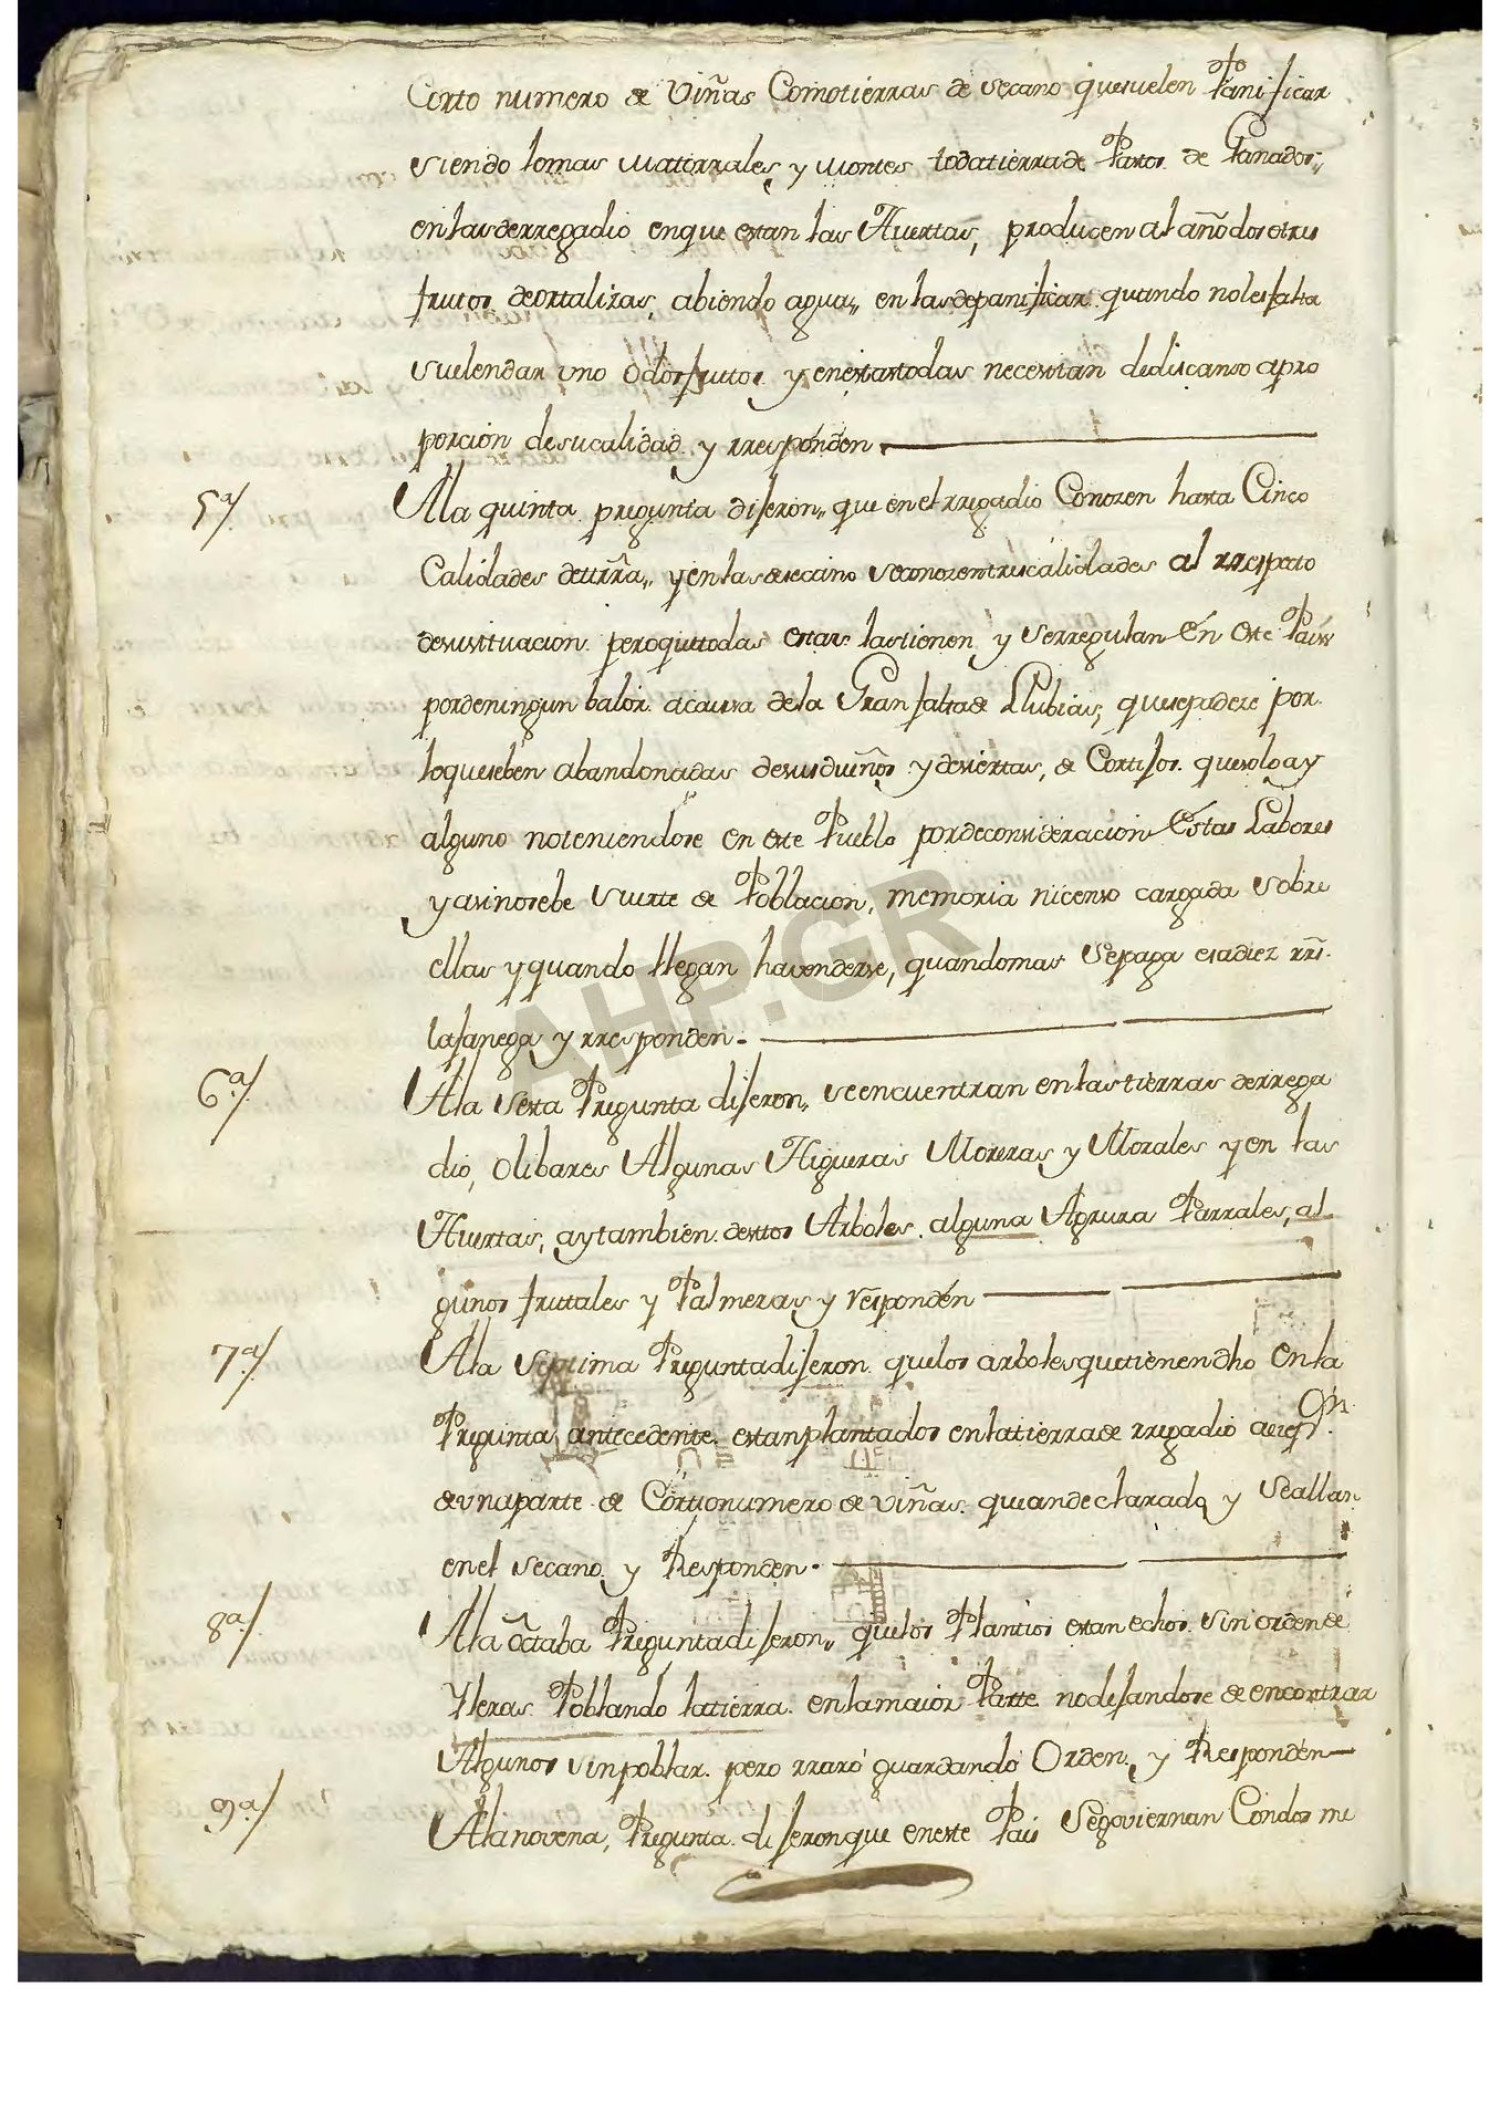 Corto numero de Viñas Comotierras de secano quesuelen Panificar
siendo lomas matorrales y montes todatierrade Pastos de Ganados,,
enlasderregadio enque estan las Huertas, producen al año dos otres
frutos deortalizas, abiendo agua,, en lasdepanificar quando nolesfalta
suelendar uno Odosfrutos y enestastodas necesitan dedescanso apro
porcion desucalidad y rresponden
5ª/ Ala quinta pregunta diseron,, que enel rregadio Conozen hasta Cinco
Calidades detierra,, yenlasdesecano seconozentrescalidades al rrespecto
desusituacion peroquetodas estas lastienen y serregulan En este Pais
pordeningun balor acausa dela Gran faltade Llubias, quesepadeze por
loqueseben abandonadas desusdueños ydesiertas, de Cortisos quesoloay
alguno noteniendose en este Pueblo pordeconsideracion Estas Labores
yasinosebe suerte de Poblacion, memoria nicenso cargada sobre
ellas yquando llegan havenderse, quandomas Sepaga esadiez rrs.
lafanega y rresponden.
6ª/ Ala Sesta Pregunta diseron,, seencuentran enlastierras derrega
dio, Olibares Algunas Higueras Moreras y Morales yen las
Huertas, aytambien destos Arboles. alguna Agrura Parrales, al
gunos frutales y Palmeras y Responden
7ª/ Ala Septima Preguntadiseron quelos arbolesquetienendho Enla
Pregunta antecedente estanplantados enlatierrade rregadio aesepon.
deunaparte de Cortonumero de viñas queandeclarado y Seallan
enel secano y Responden.
8ª/ Ala Octaba Preguntadiseron,, quelos Plantios estan echos sin ordende
Yleras Poblando latierra. enlamaior Parte nodisandose de encontrar
Algunos sinpoblar. pero rraro guardando Orden, y Responden
9ª/ Alanovena, Pregunta diseronque eneste Pais Segoviernan Condos me